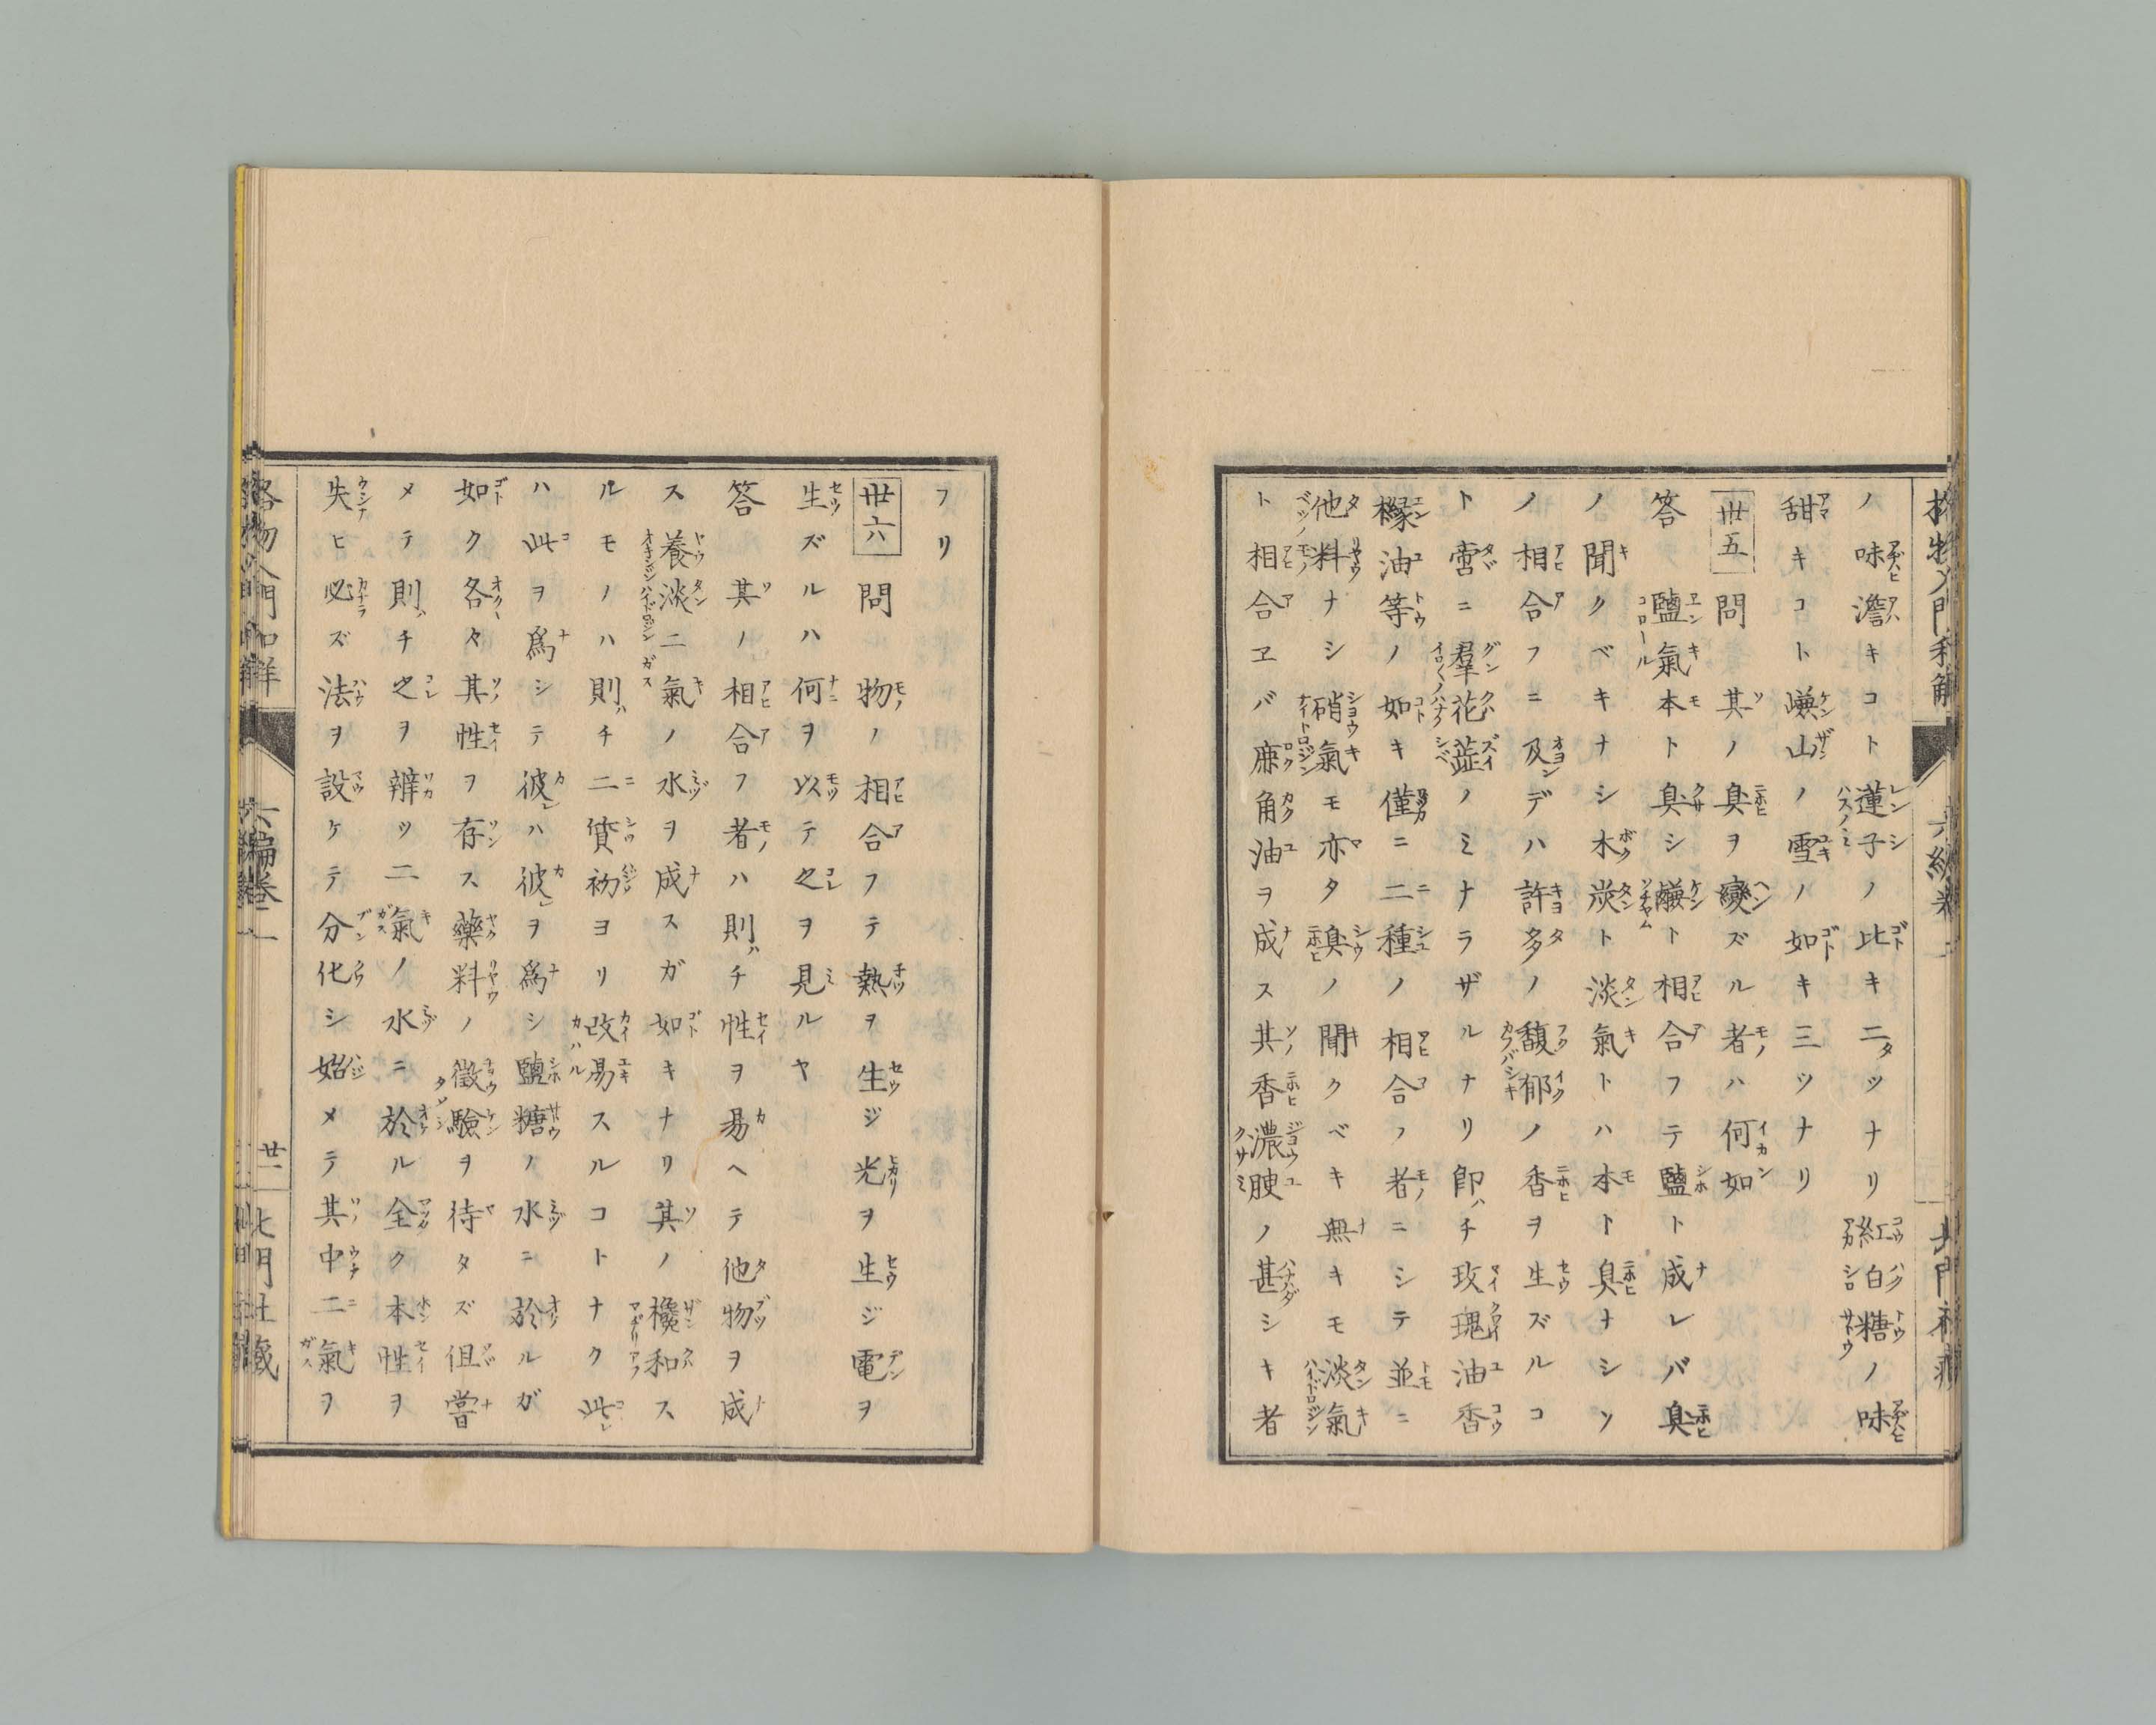 ノ味澹キコト蓮子ノ比キ二ツナリ紅白糖ノ味
甜キコト嵰山ノ雪ノ如キ三ツナリ
卅五 問其ノ臭ヲ變ズル者ハ何如
答鹽氣本ト臭シ鹻ト相合フテ鹽ト成レバ臭
ノ聞クベキナシ木炭ト淡氣トハ本ト臭ナシソ
ノ相合フニ及デハ許多ノ馥郁ノ香ヲ生ズルコ
ト啻ニ羣花蕋ノミナラザルナリ即チ玫瑰油香
櫞油等ノ如キ僅ニ二種ノ相合フ者ニシテ並ニ
他料ナシ硝氣モ亦タ臭ノ聞クベキ無キモ淡氣
ト相合ヱバ麻角油ヲ成ス其香濃腴ノ甚シキ者
フリ
卅六 問物ノ相合フテ熱ヲ生ジ光ヲ生ジ電ヲ
生ズルハ何ヲ以テ之ヲ見ルヤ
答其ノ相合フ者ハ則チ性ヲ易ヘテ他物ヲ成
ス養淡二氣ノ水ヲ成スガ如キナリ其ノ攙和ス
ルモノハ則チ二質初ヨリ改易スルコトナク此
ハ此ヲ爲シテ彼ハ彼ヲ爲シ鹽糖ノ水ニ於ルガ
如ク各々其性ヲ存ス藥料ノ徵驗ヲ待タズ但嘗
メテ則チ之ヲ辨ツ二氣ノ水ニ於ル全ク本性ヲ
失ヒ必ズ法ヲ設ケテ分化シ始メテ其中二氣ヲ
格物入門和解
六編卷一
廿一
北門社藏